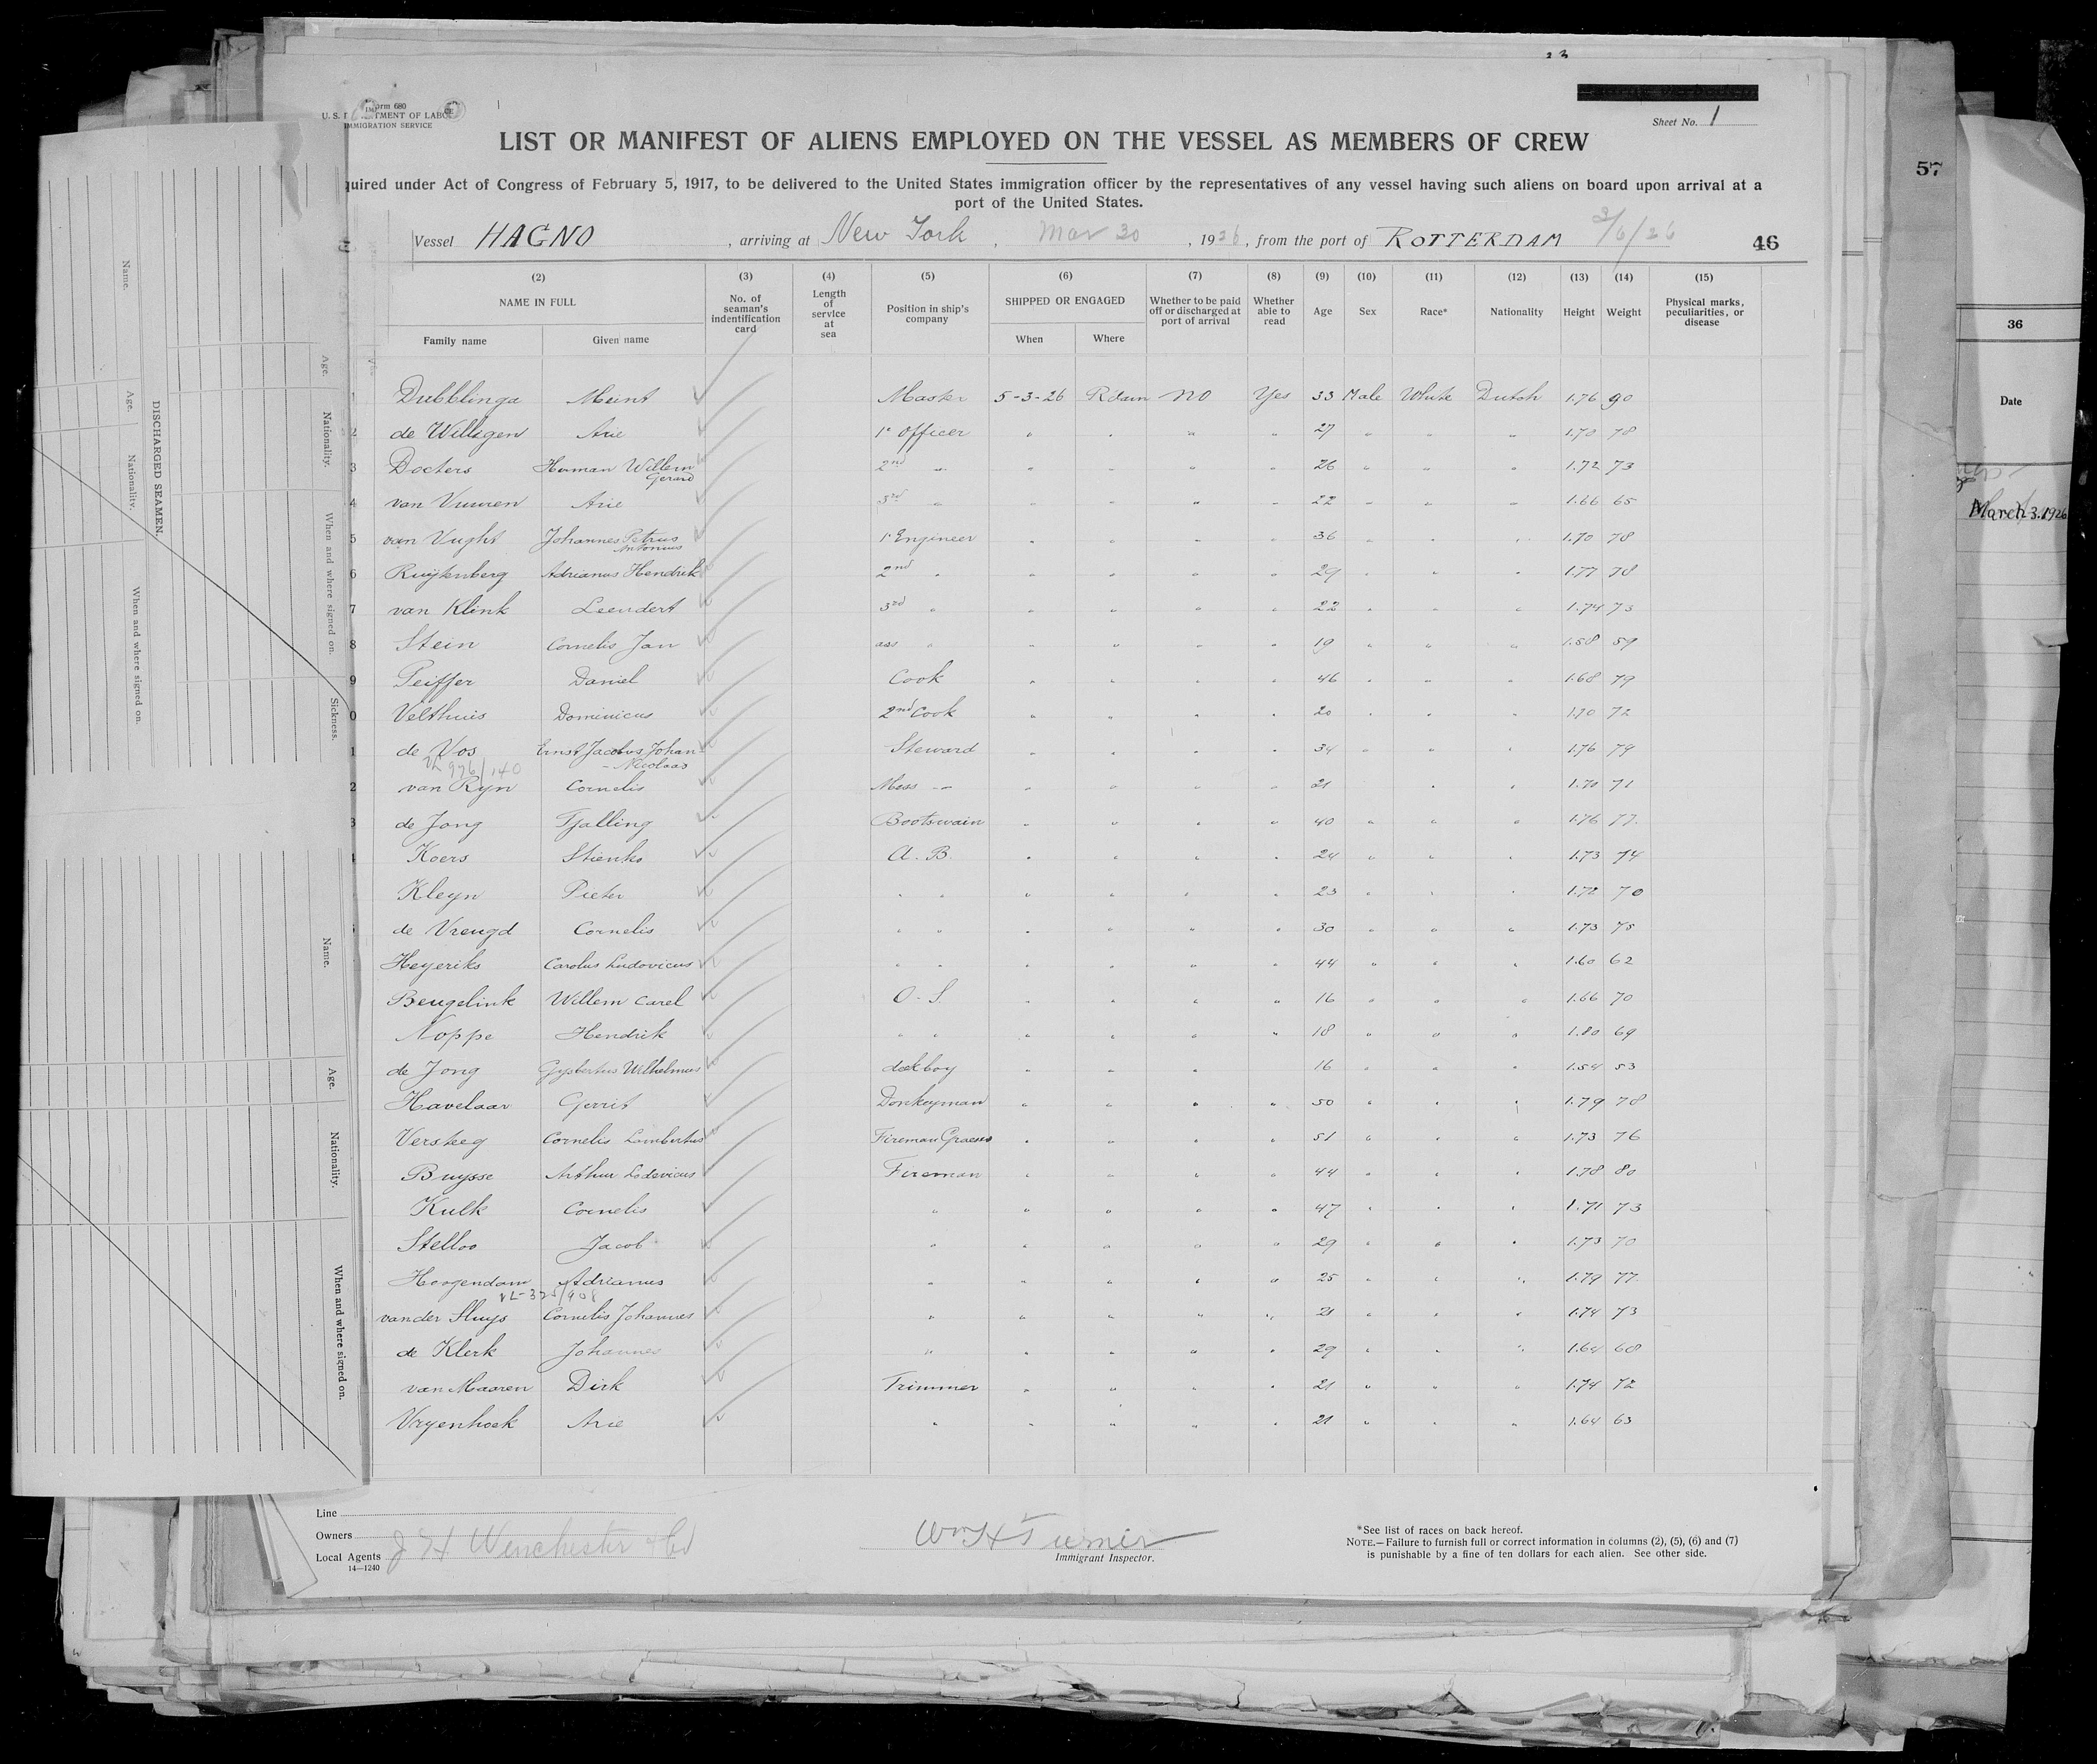 Form 680
U. S. DEPARTMENT OF LABOR
IMMIGRATION SERVICE
Sheet No. 1
LIST OR MANIFEST OF ALIENS EMPLOYED ON THE VESSEL AS MEMBERS OF CREW
quired under Act of Congress of February 5, 1917, to be delivered to the United States immigration officer by the representatives of any vessel having such aliens on board upon arrival at a
port of the United States.
Vessel HAGNO, arriving at New York, Mar 30, 1926, from the port of ROTTERDAM 3/6/26 46
(2) (3) (4) (5) (6) (7) (8) (9) (10) (11) (12) (13) (14) (15)
NAME IN FULL
Family name
Given name
No. of seaman's indentification card
Length of service at sea
Position in ship's company
SHIPPED OR ENGAGED
When
Where
Whether to be paid off or discharged at port of arrival
Whether able to read
Age
Sex
Race*
Nationality
Height
Weight
Physical marks, peculiarities, or disease
1 Dubblinga Meint Master 5-3-26 Rdam NO Yes 33 Male White Dutch 1.76 90
2 de Willigen Arie 1e Officer " " " " 27 " " " 1.70 78
3 Docters Herman Willem Gerard 2nd " " " " " 26 " " " 1.72 73
4 van Vuuren Arie 3rd " " " " " 22 " " " 1.66 65
5 van Vught Johannes Petrus Antonius 1e Engineer " " " " 36 " " " 1.70 78
6 Ruijtenberg Adrianus Hendrik 2nd " " " " " 29 " " " 1.77 78
7 van Klink Leendert 3rd " " " " " 22 " " " 1.74 73
8 Stein Cornelis Jan ass " " " " " 19 " " " 1.58 59
9 Peiffer Daniel Cook " " " " 46 " " " 1.68 79
0 Velthuis Dominicus 2nd Cook " " " " 20 " " " 1.70 72
1 de Vos Ernst Jacobus Johan- Nicolaas Steward " " " " 34 " " " 1.76 79
VL 996/140
2 van Ryn Cornelis Mess " " " " " 21 " " 1.70 71
3 de Jong Tjalling Bootswain " " " " 40 " " " 1.76 77
Koers Stienko A. B. " " " " 24 " " " 1.73 74
Kleyn Pieter " " " " " " 23 " " " 1.72 70
de Vreugd Cornelis " " " " " " 30 " " " 1.73 75
Heyeriks Carolus Ludovicus " " " " " " 44 " " " 1.60 62
Beugelink Willem Carel O. S. " " " " 16 " " " 1.66 70
Noppe Hendrik " " " " " " 18 " " " 1.80 69
de Jong Gysbertus Wilhelmus dekboy " " " 16 " " " 1.54 53
Havelaar Gerrit Donkeyman " " " " 50 " " " 1.79 78
Versteeg Cornelis Lambertus Fireman Greaser " " " " 51 " " " 1.73 76
Buysse Arthur Lodevicus Fireman " " " " 44 " " " 1.78 80
Kulk Cornelis " " " " " 47 " " " 1.71 73
Stelloo Jacob " " " " " 29 " " " 1.73 70
Hoogendam Adrianus " " " " " 25 " " " 1.79 77
van der Sluys Cornelis Johannes " " " " " 21 " " " 1.74 73
de Klerk Johannes " " " " " 29 " " " 1.64 68
van Maaren Dirk Trimmer " " " " 21 " " " 1.74 72
Vryenhoek Arie " " " " " 21 " " " 1.64 63
Line
Owners
Local Agents J H Winchester & Co
14—1240
Wm H Turner
Immigrant Inspector.
*See list of races on back hereof.
NOTE.—Failure to furnish full or correct information in columns (2), (5), (6) and (7)
is punishable by a fine of ten dollars for each alien. See other side.
DISCHARGED SEAMEN.
Name.
Age.
Nationality.
When and where signed on.
Name.
Age.
Nationality.
When and where signed on.
Sickness.
Name.
Age.
Nationality.
When and where signed on.
57
36
Date
March 3. 1926